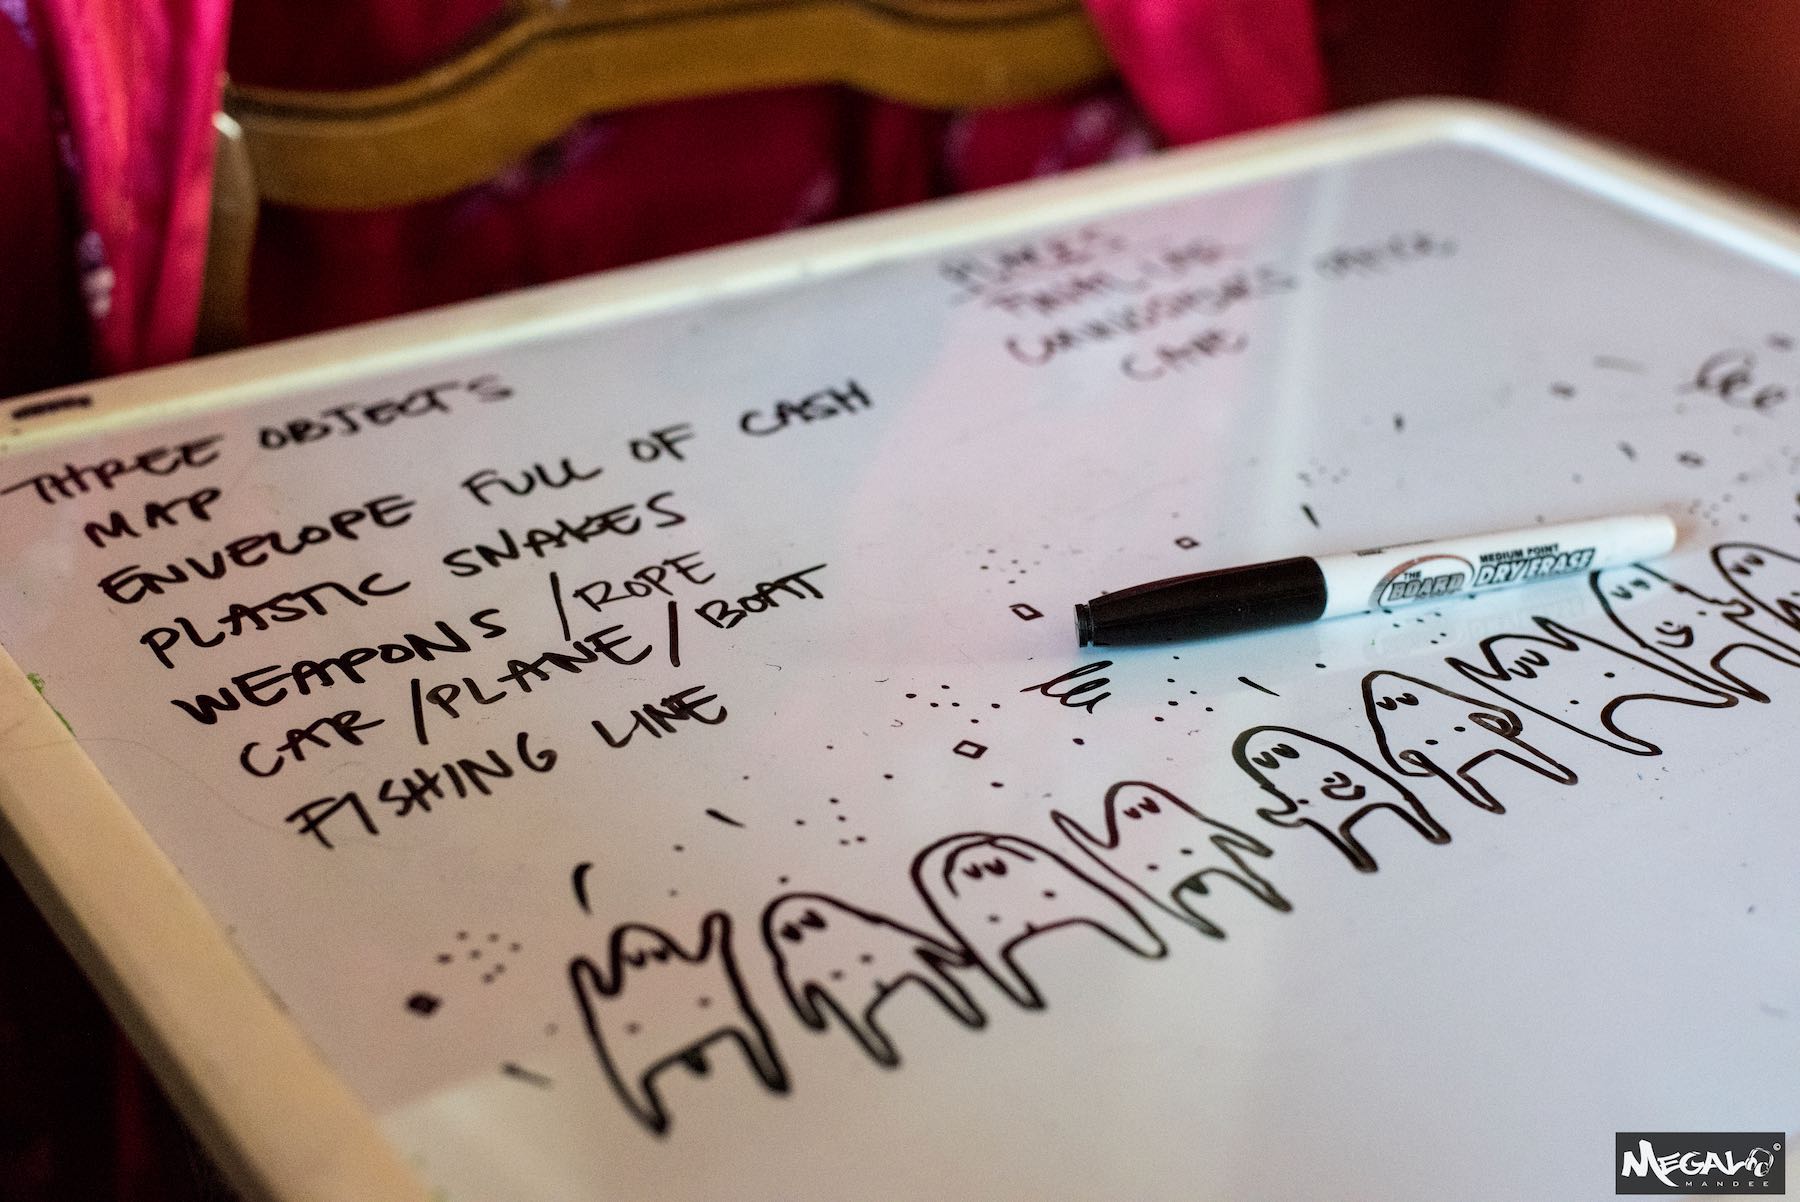 THREE OBJECTS
MAP
ENVELOPE FULL OF CASH
PLASTIC SNAKES
WEAPONS / ROPE
CAR / PLANE / BOAT
FISHING LINE
PLACES
OFFICE
CAVE
THE BOARD
MEDIUM POINT
DRY ERASE
MEGALO
MANDEE